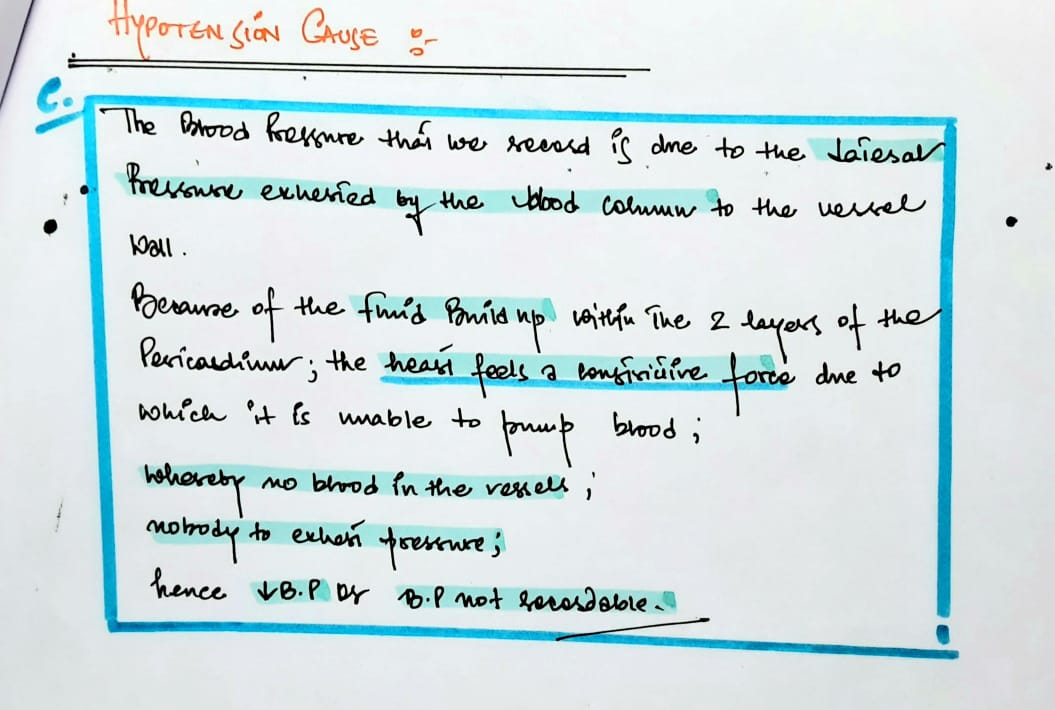 HYPOTENSION CAUSE :-
C.
The Blood Pressure that we record is due to the Lateral
Pressure exherted by the blood column to the vessel
Wall.
Because of the fluid Build up within The 2 layers of the
Pericardium; the heart feels a constrictive force due to
which it is unable to pump blood;
whereby no blood in the vessels;
nobody to exhert pressure;
hence ↓B.P or B.P not recordable.